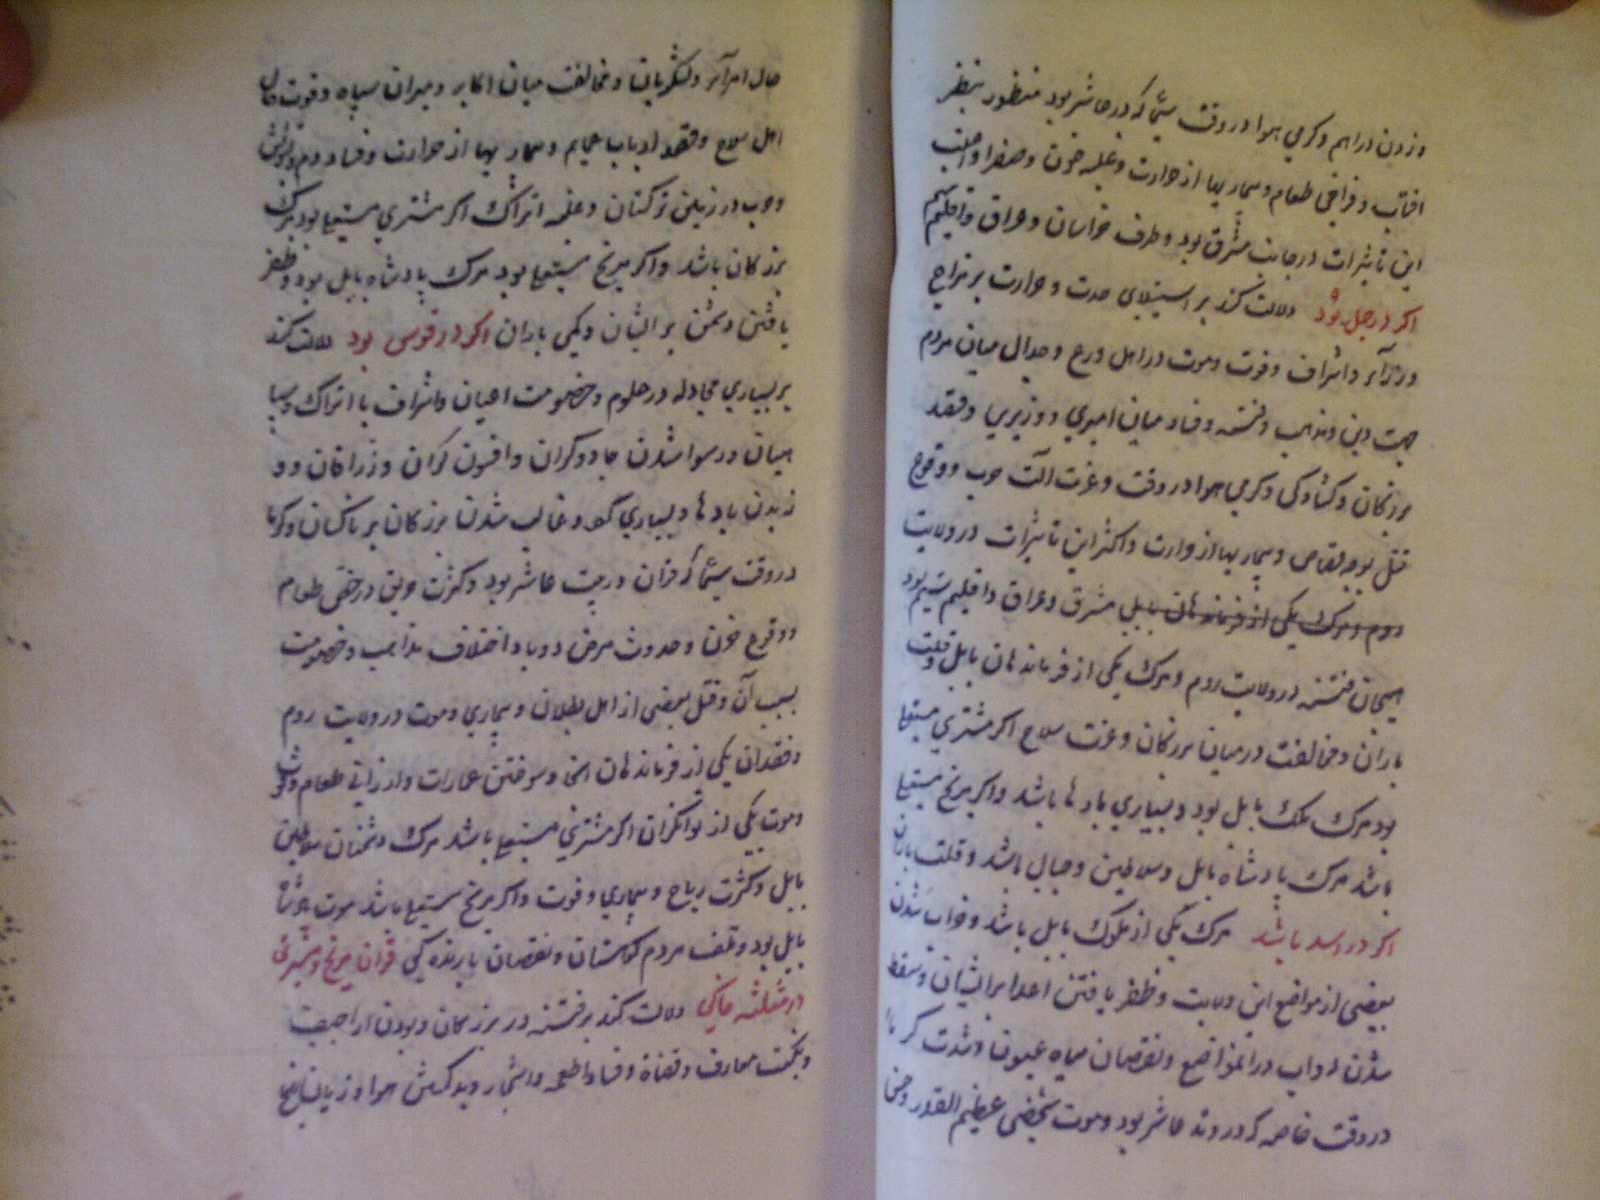 وزدن دراهم و کرمی هوا در وقت سیما که در عاشر بود منظور بنظر
افتاب و فراخی طعام و بیماریها از حرارت و غلبه خون و صفرا و
این تاثیرات در جانب مشرق بود و طرف خراسان و عراق و اقلیم
اکر در حمل بود دلالت کند بر استیلای حدت و حرارت بر مزاج
وزرآء و اشراف و فوت و موت در اهل ورع و جدال میان مردم
جهت دین و مذهب و فتنه و فساد میان امیری و وزیری و فقد
بزرکان و کشادکی و کرمی هوا در وقت و عزت آلت حرب و وقوع
قتل بوجه قصاص و بیماریها از حرارت و اکثر این تاثیرات در ولایت
روم و مرک یکی از فرماندهان بابل مشرق و عراق و اقلیم سیم بود
هیجان فتنه در ولایت روم و مرک یکی از فرماندهان بابل و قلت
باران و مخالفت در میان بزرکان و عزت سلاح اکر مشتری مستعلی
بود مرک ملک بابل بود و بسیاری بادها باشد و اکر مریخ مستعلی
باشد مرک پادشاه بابل و سلاطین و جبال باشد و قلت باران
اکر در اسد باشد مرک یکی از ملوک بابل باشد و خراب شدن
بعضی از مواضع این ولایت و ظفر یافتن اعدا بر ایشان و سقط
شدن دواب در انمواضع و نقصان میاه عیون و شدت کرما
در وقت خاصه که در وتد عاشر بود و موت شخصی عظیم القدر و
حال امرآء و لشکریان و مخالفت میان اکابر و میران سپاه و قوت حال
اهل سلاح و فقد ارباب عمایم و بیماریها از حرارت و فساد دم و
و حرب در زمین ترکستان و غلبه اتراک اکر مشتری مستعلی بود مرک
بزرکان باشد و اکر مریخ مستعلی بود مرک پادشاه بابل بود و ظفر
یافتن دشمن بر ایشان و کمی باران اکر در قوس بود دلالت کند
بر بسیاری مجادله در علوم و خصومت اعیان و اشراف با اتراک و سپا
هیان و رسوا شدن جادوکران و افسون کران و زراقان و و
زیدن بادها و بسیاری و غالب شدن بزرکان بر ناکسان و کرما
در وقت سیما که قران در بیت عاشر بود و کثرت طعام
و وقوع خون و حدوث مرض و وبا و اختلاف مذاهب و خصومت
بسبب آن و قتل بعضی از اهل بطلان و بیماری و موت در ولایت روم
و فقدان یکی از فرماندهان انجا و سوختن عمارات و ارزانی طعام و
و موت یکی از توانکران اکر مشتری مستعلی باشد مرک دشمنان سلاطین
بابل و کثرت ریاح و بیماری و فوت و اکر مریخ مستعلی باشد موت
بابل بود و تلف مردم کوهستان و نقصان بارندکی قران مریخ و مشتری
در مثلثه خاکی دلالت کند بر فتنه در بزرکان و بودن اراجیف
و نکبت معارف و قضاة و فساد اطعمه و اشجار و بد هوا و زیان